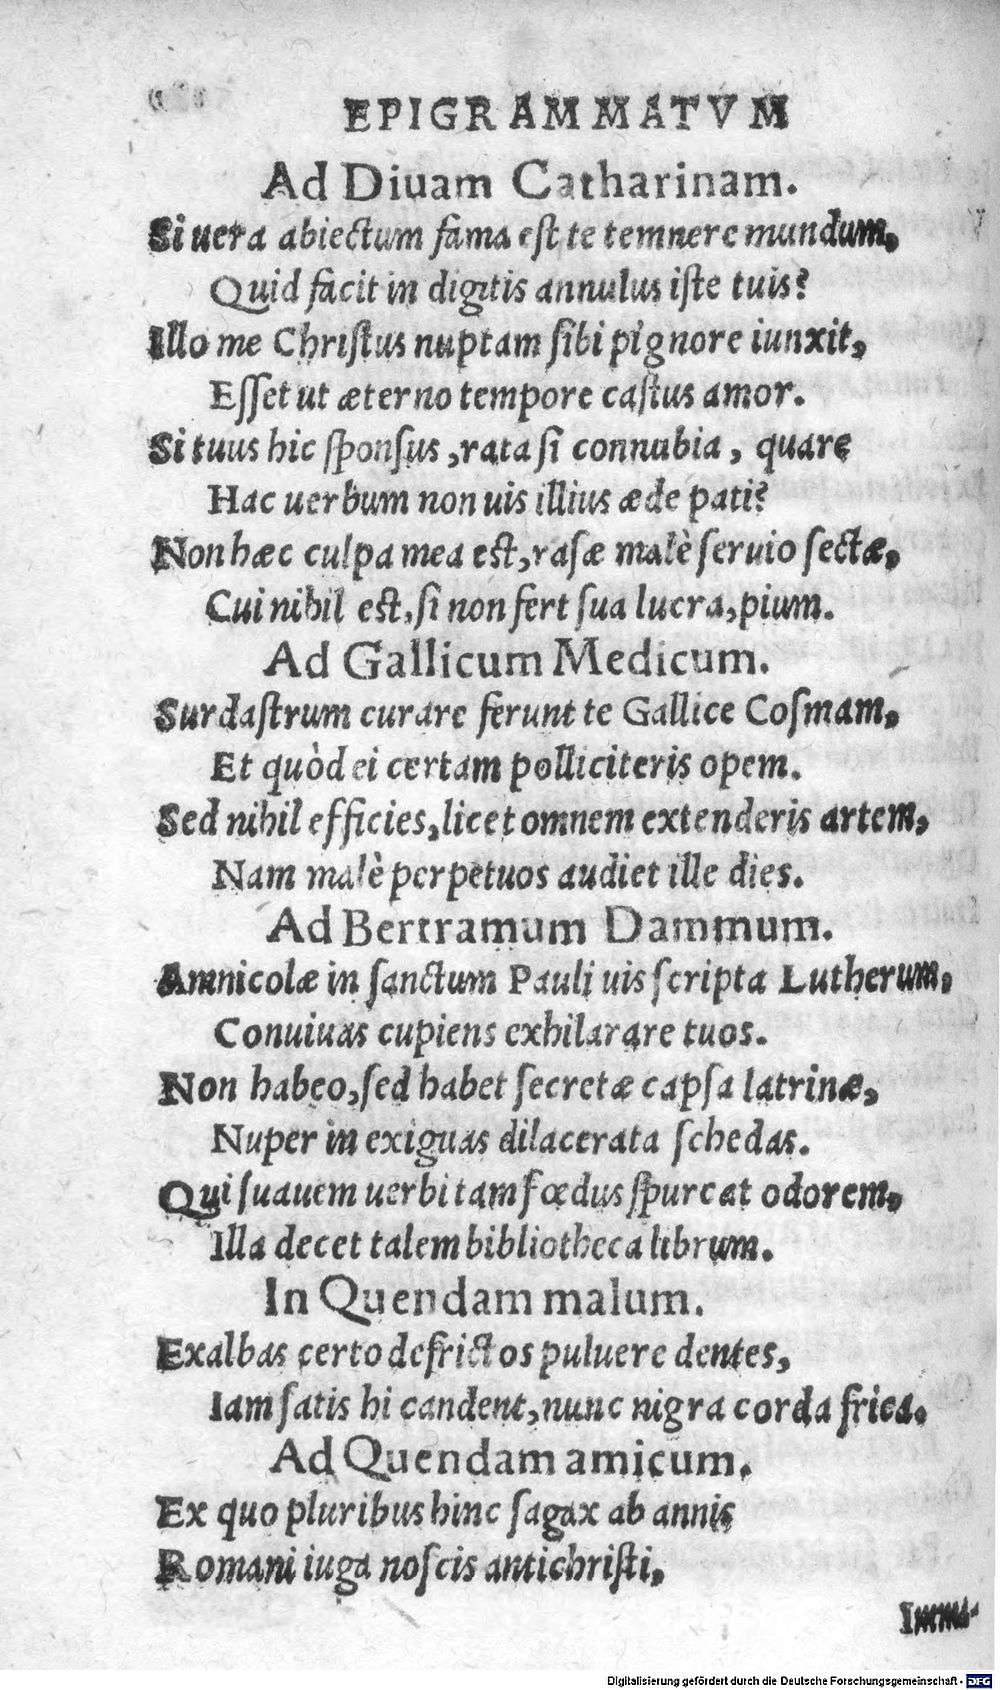 EPIGRAMMATVM
Ad Diuam Catharinam.
Si uera abiectum fama est te temnere mundum,
Quid facit in digitis annulus iste tuis?
Illo me Christus nuptam sibi pignore iunxit,
Esset ut æterno tempore castus amor.
Si tuus hic sponsus, rata si connubia, quare
Hac uerbum non uis illius æde pati?
Non hæc culpa mea est, rasæ malè seruio sectæ,
Cui nihil est, si non fert sua lucra, pium.
Ad Gallicum Medicum.
Surdastrum curare ferunt te Gallice Cosmam,
Et quòd ei certam polliciteris opem.
Sed nihil efficies, licet omnem extenderis artem,
Nam malè perpetuos audiet ille dies.
Ad Bertramum Dammum.
Amnicolæ in sanctum Pauli uis scripta Lutherum,
Conuiuas cupiens exhilarare tuos.
Non habeo, sed habet secretæ capsa latrinæ,
Nuper in exiguas dilacerata schedas.
Qui suauem uerbi tam fœdus spurcat odorem,
Illa decet talem bibliotheca librum.
In Quendam malum.
Exalbas certo defrictos puluere dentes,
Iam satis hi candent, nunc nigra corda frica.
Ad Quendam amicum.
Ex quo pluribus hinc sagax ab annis
Romani iuga noscis antichristi,
Imma-
Digitalisierung gefördert durch die Deutsche Forschungsgemeinschaft - DFG